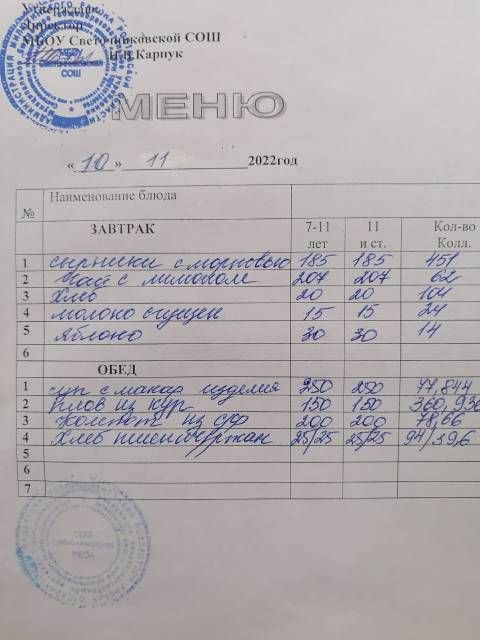 Утверждаю
Директор
МБОУ Светочниковской СОШ
Н.В.Карпук
МЕНЮ
«10» 11 2022год
№ Наименование блюда
ЗАВТРАК 7-11 лет 11 и ст. Кол-во Колл.
1 сырники с морковью 185 185 451
2 Чай с лимоном 207 207 62
3 Хлеб 20 20 104
4 молоко сгущен 15 15 24
5 Яблоко 30 30 14
6
ОБЕД
1 суп с макар изделия 250 250 77,844
2 Плов из кур 150 150 360,936
3 Компот из с/ф 200 200 78,66
4 Хлеб пшен/ржан 25/25 25/25 94/39,6
5
6
7